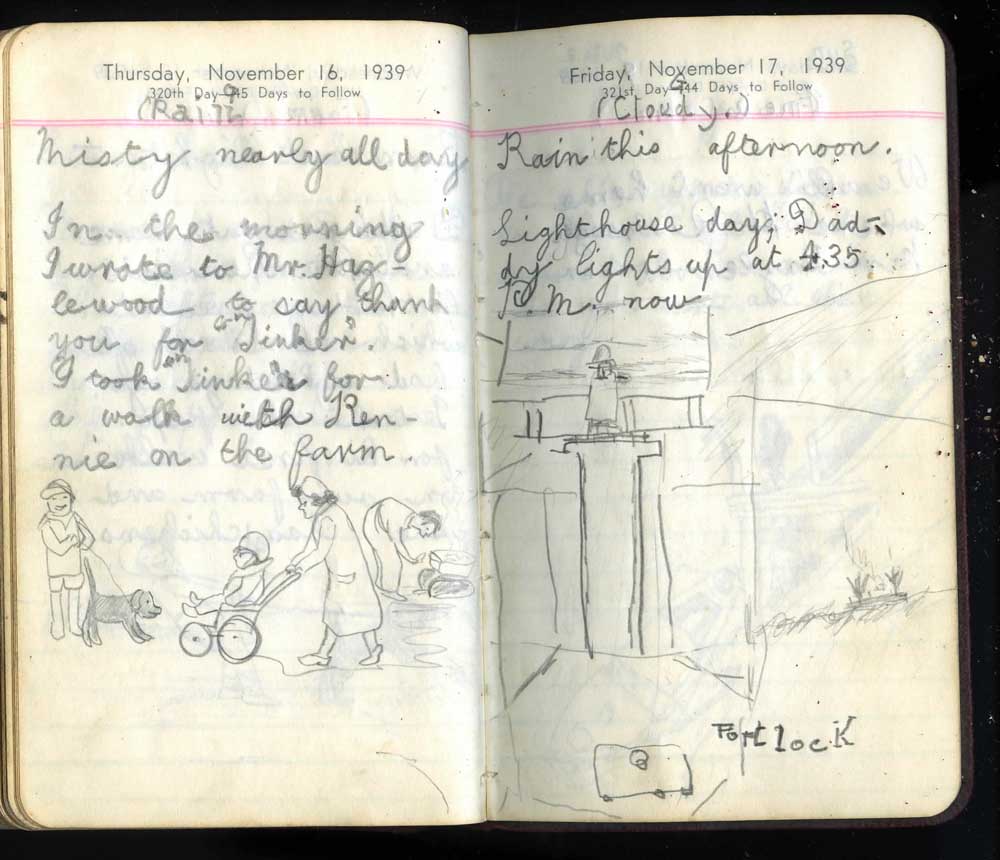 Thursday, November 16, 1939
320th Day—45 Days to Follow
(Rain)
Misty nearly all day
In the morning
I wrote to Mr. Haz-
lewood to say thank
you for "Tinker".
I took "Tinker" for
a walk with Ken-
nie on the farm.
Friday, November 17, 1939
321st Day—44 Days to Follow
(Cloudy.)
Rain this afternoon.
Lighthouse day; Dad-
dy lights up at 4.35
P.M. now
Portlock